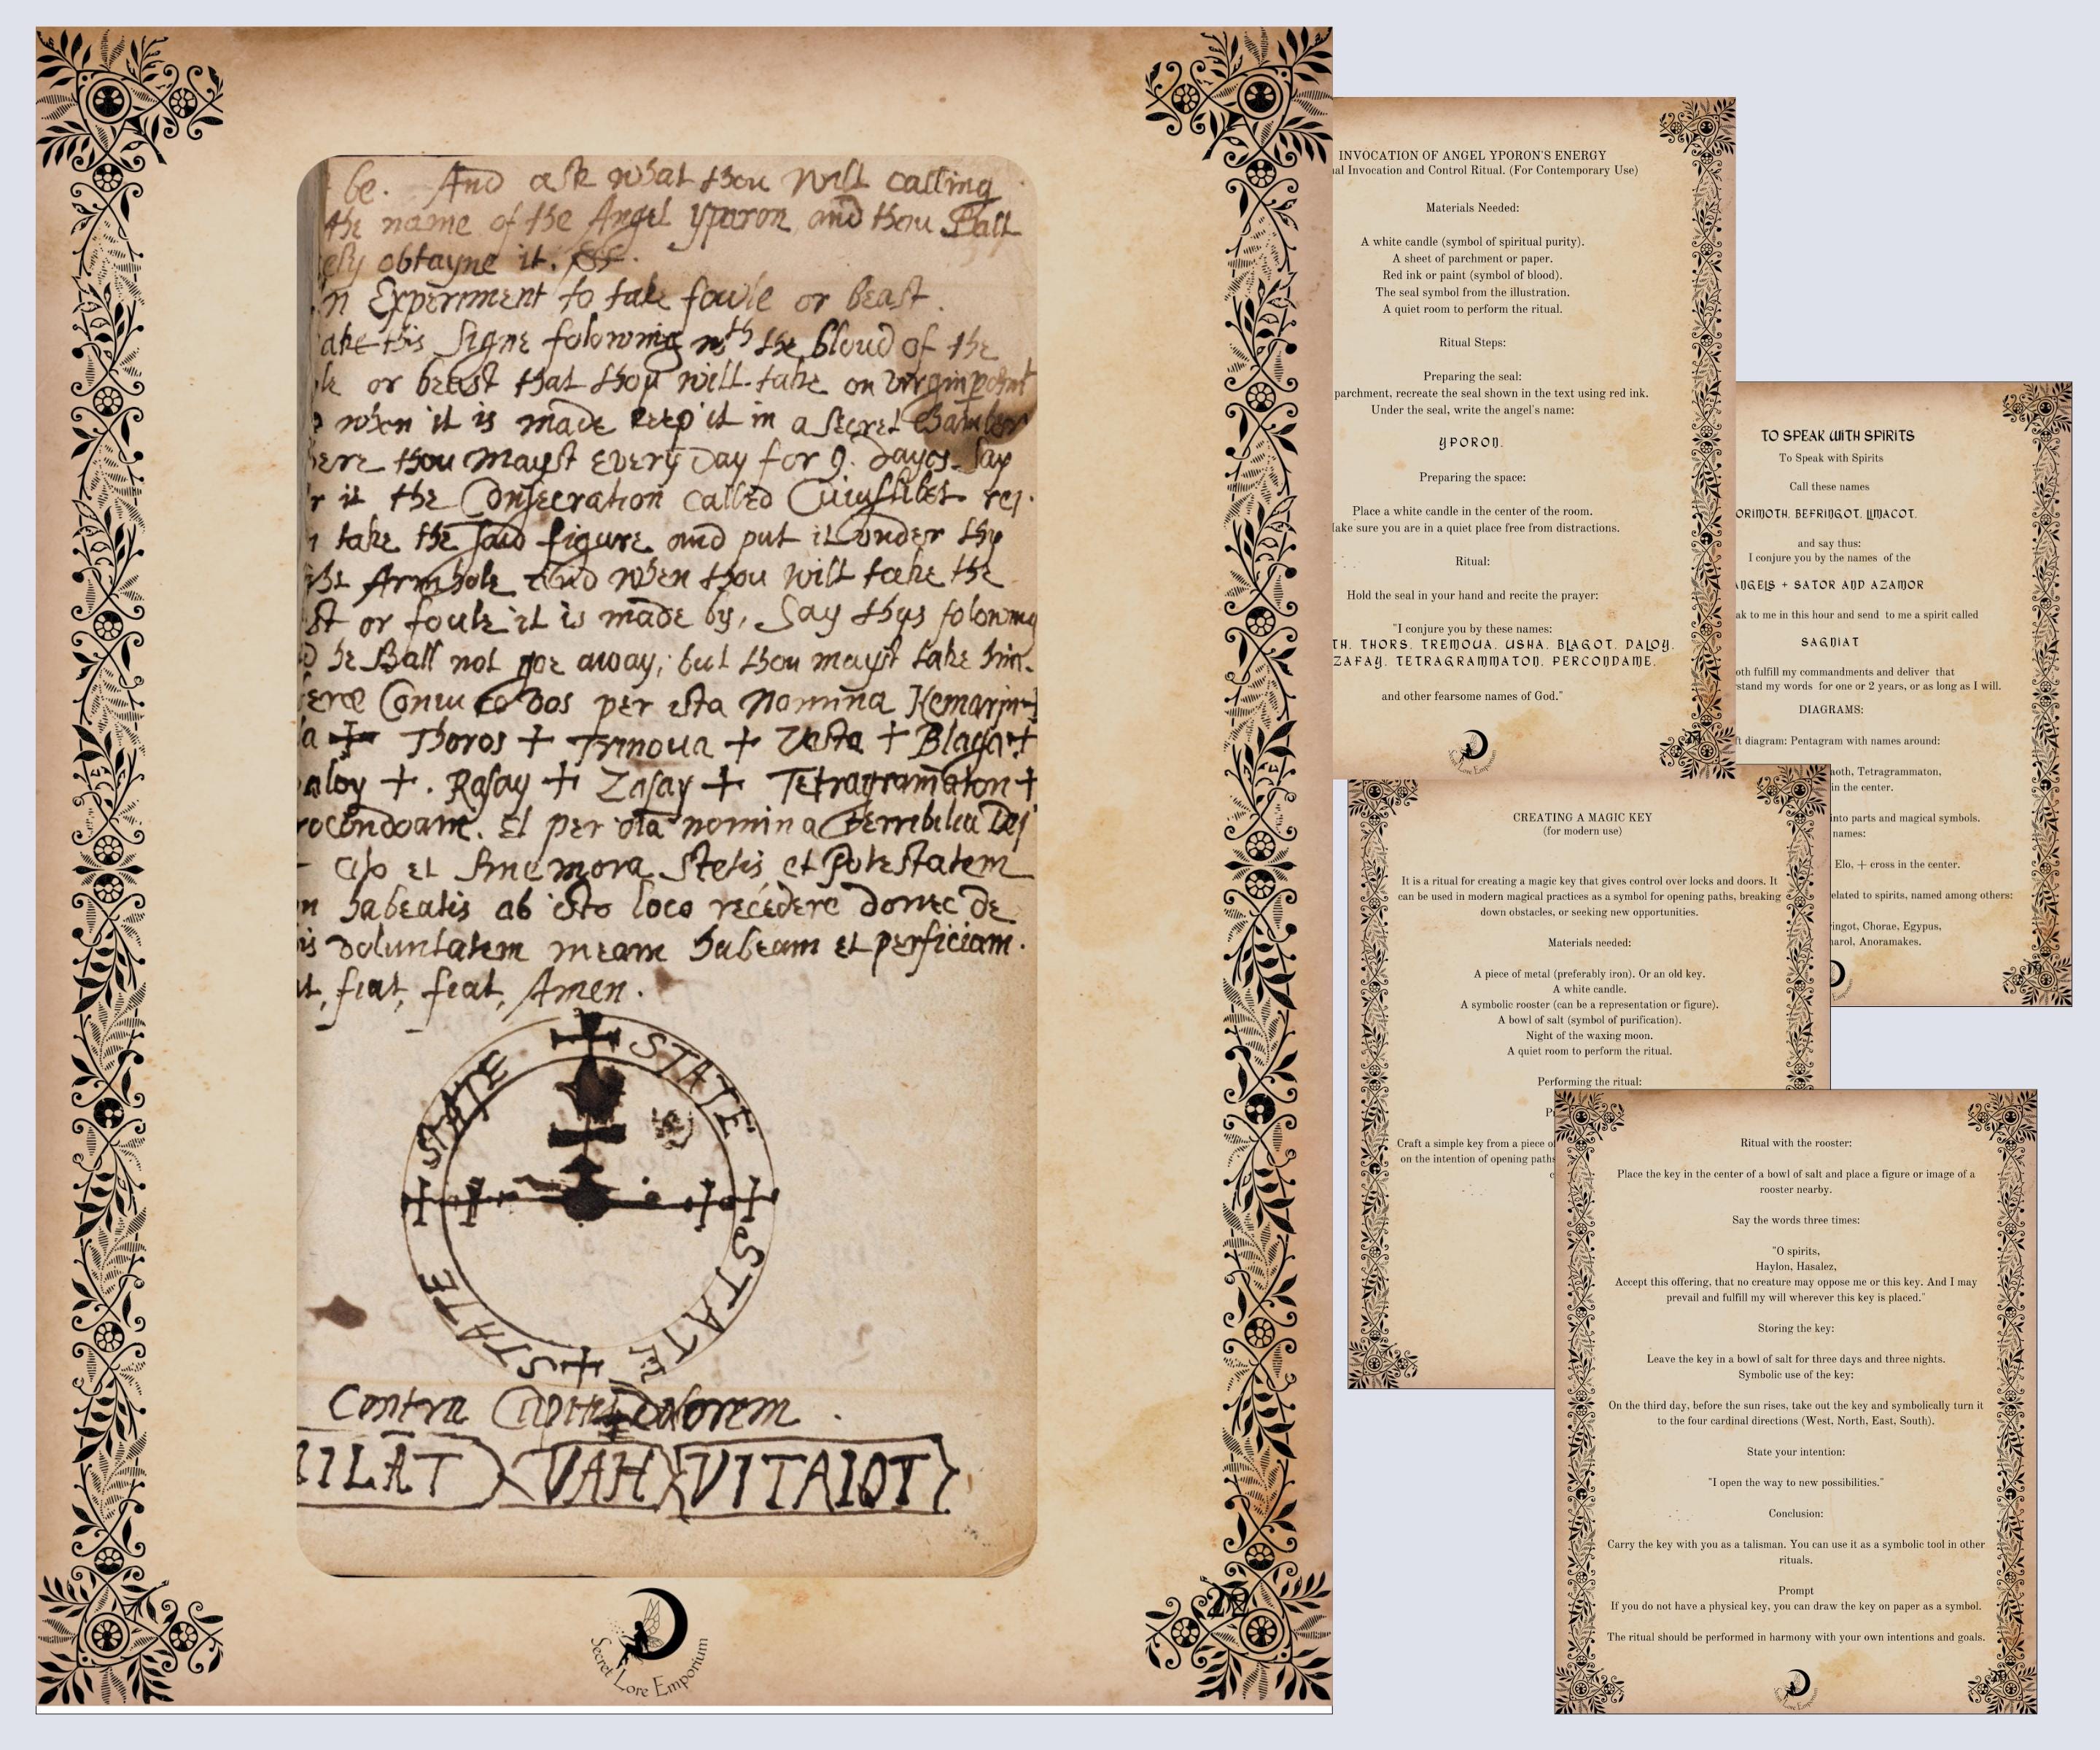 be. And ask what thou will calling
the name of the Angel yparon and thou Shall
obtayne it.
Experiment to take foule or beast.
this Signe folowing wth the bloud of the
or beast that thou will take on
when it is made keep it in a secret Chamber
thou mayst Every Day for 9. Dayes. Say
it the Consecration called
take the said figure and put it under thy
Armhole and when thou will take the
or foule it is made by, Say thys folowing
he Shall not goe away, but thou mayst take him.
vos per ista Nomina
Thoros + Trinoua + Vasta + Blagat +
aloy +. Rasay + Zasay + Tetragramaton +
Et per ista nomina Terribilia Dei
et Potestatem
habeatis ab isto loco recedere donec de
voluntatem meam habeam et perficiam.
fiat, fiat, Amen.
STATE
STATE
STATE
STATE
Contra Capitis Dolorem.
ILAT VAH VITAIOT
Secret Lore Emporium
INVOCATION OF ANGEL YPORON'S ENERGY
Invocation and Control Ritual. (For Contemporary Use)
Materials Needed:
A white candle (symbol of spiritual purity).
A sheet of parchment or paper.
Red ink or paint (symbol of blood).
The seal symbol from the illustration.
A quiet room to perform the ritual.
Ritual Steps:
Preparing the seal:
parchment, recreate the seal shown in the text using red ink.
Under the seal, write the angel's name:
YPORON.
Preparing the space:
Place a white candle in the center of the room.
ake sure you are in a quiet place free from distractions.
Ritual:
Hold the seal in your hand and recite the prayer:
"I conjure you by these names:
TH. THORS. TREMOUA. USHA. BLAGOT. DALOY.
ZAFAY. TETRAGRAMMATON. PERCONDAME.
and other fearsome names of God."
Secret Lore Emporium
TO SPEAK WITH SPIRITS
To Speak with Spirits
Call these names
ORIMOTH. BEFRINGOT. LIMACOT.
and say thus:
I conjure you by the names of the
ANGELS + SATOR AND AZAMOR
ak to me in this hour and send to me a spirit called
SAGNIAT
oth fulfill my commandments and deliver that
stand my words for one or 2 years, or as long as I will.
DIAGRAMS:
t diagram: Pentagram with names around:
aoth, Tetragrammaton,
in the center.
into parts and magical symbols.
names:
Elo, + cross in the center.
elated to spirits, named among others:
ringot, Chorae, Egypus,
harol, Anoramakes.
CREATING A MAGIC KEY
(for modern use)
It is a ritual for creating a magic key that gives control over locks and doors. It
can be used in modern magical practices as a symbol for opening paths, breaking
down obstacles, or seeking new opportunities.
Materials needed:
A piece of metal (preferably iron). Or an old key.
A white candle.
A symbolic rooster (can be a representation or figure).
A bowl of salt (symbol of purification).
Night of the waxing moon.
A quiet room to perform the ritual.
Performing the ritual:
Craft a simple key from a piece o
on the intention of opening paths
Ritual with the rooster:
Place the key in the center of a bowl of salt and place a figure or image of a
rooster nearby.
Say the words three times:
"O spirits,
Haylon, Hasalez,
Accept this offering, that no creature may oppose me or this key. And I may
prevail and fulfill my will wherever this key is placed."
Storing the key:
Leave the key in a bowl of salt for three days and three nights.
Symbolic use of the key:
On the third day, before the sun rises, take out the key and symbolically turn it
to the four cardinal directions (West, North, East, South).
State your intention:
"I open the way to new possibilities."
Conclusion:
Carry the key with you as a talisman. You can use it as a symbolic tool in other
rituals.
Prompt
If you do not have a physical key, you can draw the key on paper as a symbol.
The ritual should be performed in harmony with your own intentions and goals.
Secret Lore Emporium